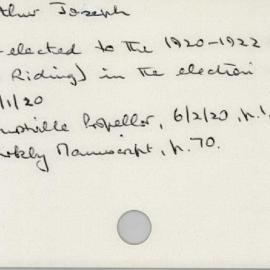 thur Joseph
-elected to the 1920-1922
Riding) in the election
/1/20
ville Propellor, 6/2/20, p.
kly Manuscript, p. 70.